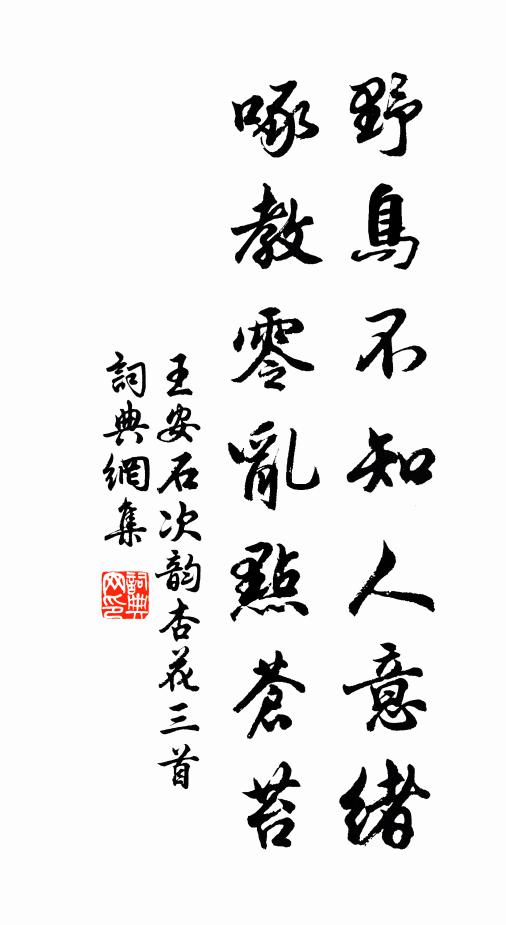 野鳥不知人意緒
啄教零亂點蒼苔
王安石次韵杏花三首
詞典網集
詞典网印